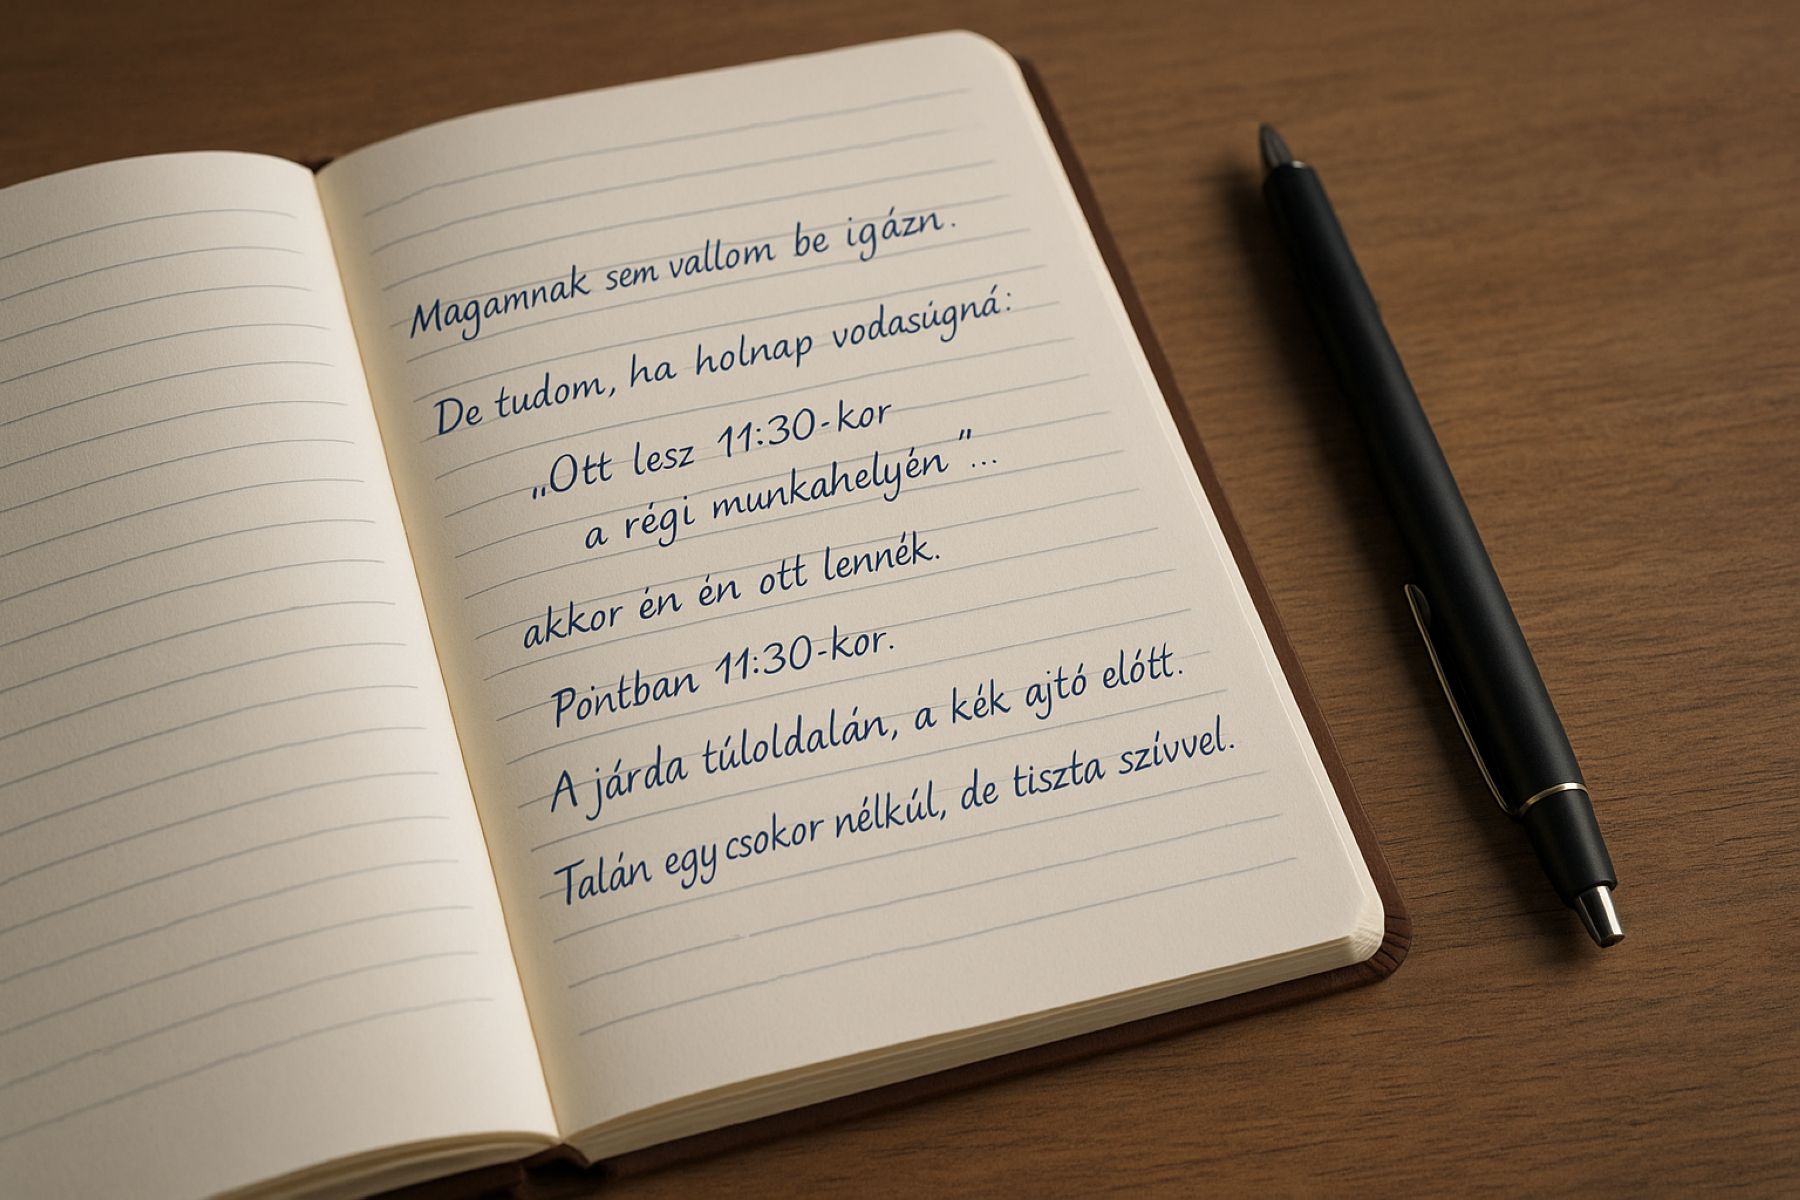 Magamnak sem vallom be igázn.
De tudom, ha holnap vodasúgná:
„Ott lesz 11:30-kor
a régi munkahelyén”...
akkor én én ott lennék.
Pontban 11:30-kor.
A járda túloldalán, a kék ajtó elótt.
Talán egy csokor nélkúl, de tiszta szívvel.